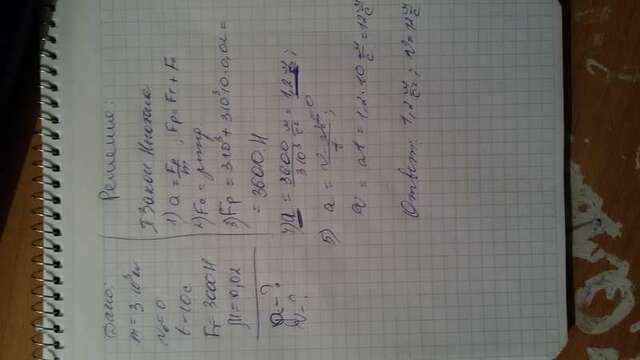 Дано:
m = 3·10³ кг
v₀ = 0
t = 10 с
Fт = 3000 Н
μ = 0,02
a - ?
v - ?
Решение:
II Закон Ньютона
1) a = Fр/m ; Fр = Fт + Fс
2) Fс = μmg
3) Fр = 3·10³ + 3·10³·10·0,02 =
= 3600 Н
4) a = 3600/3·10³ м/с² = 1,2 м/с² ;
5) a = v - v₀/t ;
v = at = 1,2 · 10 м/с = 12 м/с
Ответ: 1,2 м/с² ; v = 12 м/с